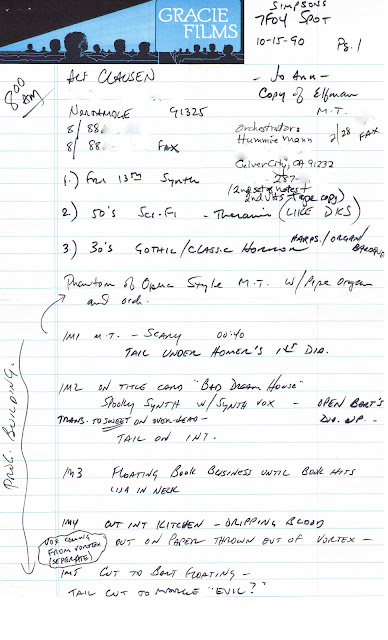 GRACIE
FILMS
SIMPSONS
7F04 SPOT
10-15-90 Pg. 1
8:00
AM
ALF CLAUSEN
- Jo Ann -
Copy of Elfman
M.T.
NORTHRIDGE 91325
8/ 88
8/ 88 FAX
Orchestrator:
Hummie Mann 2/28 FAX
Culver City, CA 91232
287-
(2nd set of notes +
2nd VHS tape copy)
1.) Fri 13th Synth
2.) 50's Sci-Fi - Theramin (LIKE DKS)
3.) 30's GOTHIC/CLASSIC HORROR HARPS./ORGAN/
Phantom of Opera Style M.T. w/Pipe Organ
and orch.
PROG. BUILDING.
1M1 M.T. - SCARY 00:40
TAIL UNDER HOMER'S 1ST DIA.
1M2 ON TITLE CARD "BAD DREAM HOUSE"
Spooky Synth w/ SYNTH VOX - OPEN BART'S
TRANS. TO SWEET ON OVERHEAD - DIA. UP -
TAIL ON INT.
1M3 FLOATING BOOK BUSINESS UNTIL BOOK HITS
LISA IN NECK
1M4 CUT INT KITCHEN - DRIPPING BLOOD
OUT ON PAPER THROWN OUT OF VORTEX -
VOX COMING
FROM VORTEX
(SEPARATE)
1M5 CUT TO BART FLOATING -
TAIL CUT TO MARGE "EVIL?"